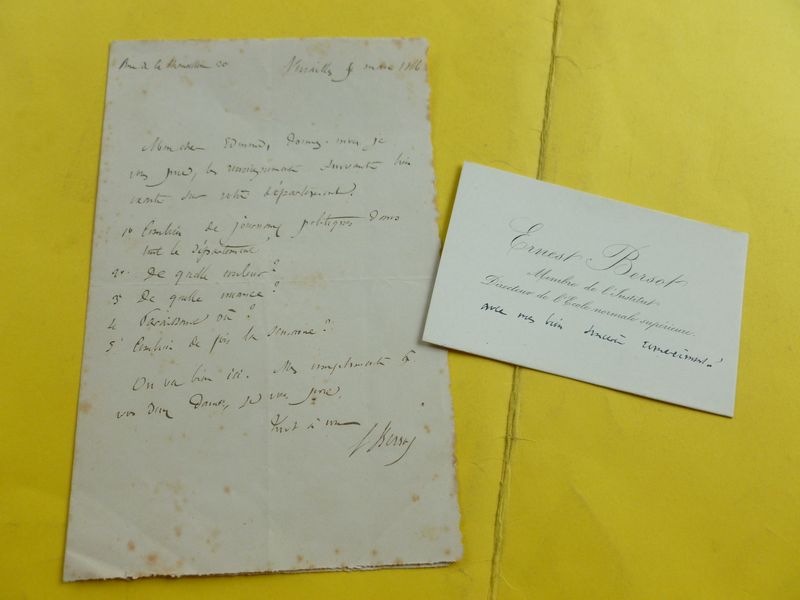 Rue de la 20
Versailles 8 mars 1866
Mon cher Edmond, Donnez-moi, je
vous prie, les renseignements suivants bien
exacts sur votre département.
1º Combien de journaux politiques dans
tout le département?
2º De quelle couleur?
3º De quelle nuance?
4º Paraissant où?
5º Combien de fois la semaine?
On va bien ici. Mes compliments à
vos deux Dames, je vous prie.
Tout à vous
E Bersot
Ernest Bersot
Membre de l'Institut
Directeur de l'Ecole normale supérieure.
avec mes bien sincères remerciments.